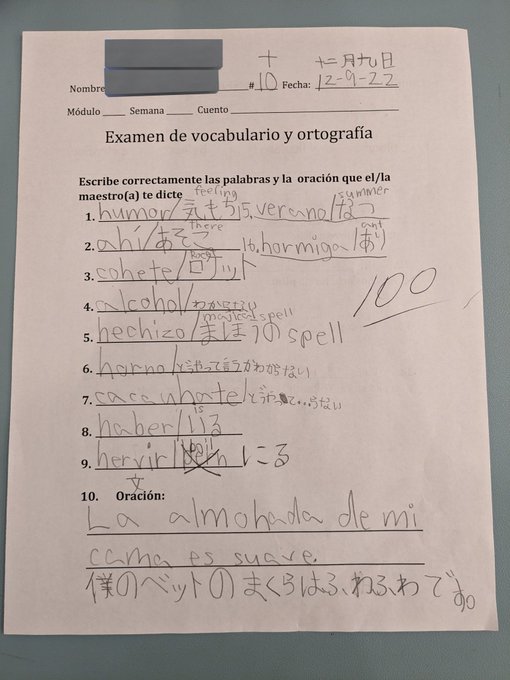 十
十二月九日
Nombre #10 Fecha: 12-9-22
Módulo Semana Cuento
Examen de vocabulario y ortografía
Escribe correctamente las palabras y la oración que el/la
maestro(a) te dicte
feeling summer
1. humor/気もち 15. verano/なつ
there ant
2. ahí/あそこ 16. hormiga/あり
Rocket
3. cohete/ロケット
100
4. alcohol/わからない
magical spell
5. hechizo/まほうのspell
6. horno/どうやって言うかわからない
7. cacauhate/どうやって...らない
is
8. haber/いる
9. hervir/にる
文
10. Oración:
La almohada de mi
cama es suave.
僕のベットのまくらはふわふわです。